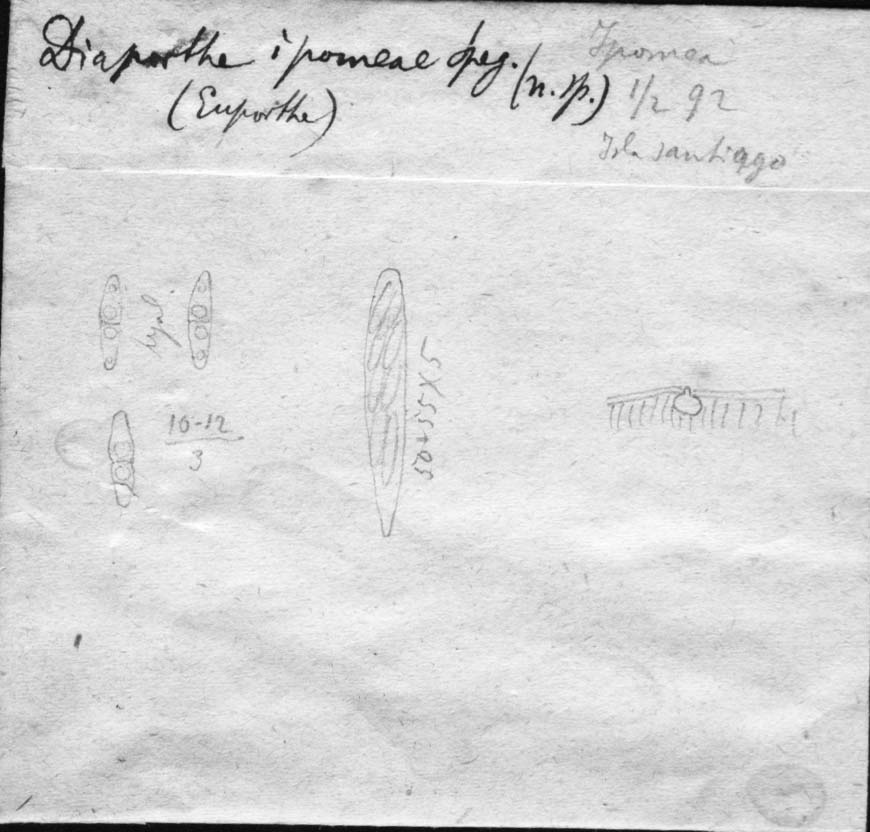 Diaporthe ipomeae Speg. (n. sp.)
(Euporthe)
Ipomea
1/2 92
Isla santiago
hyal.
10-12
3
50-55×5